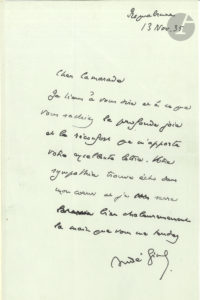 13 Nov. 35
Cher camarade
Je tiens à vous dire et à ce que
vous sachiez la profonde joie
et le réconfort que m'apporte
votre excellente lettre. Votre
sympathie trouve écho dans
mon cœur et je serre
bien chaleureusement
la main que vous me tendez
André Gide